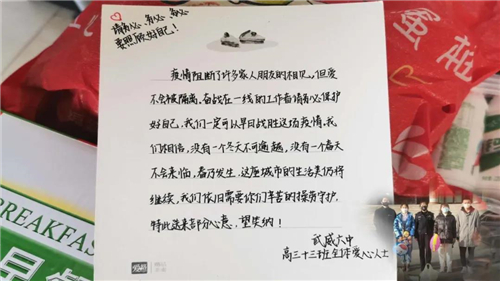 请务必、务必、务必
要照顾好自己！
疫情阻断了许多家人朋友的相见。但爱
不会被隔离。奋战在一线的工作者请务必保护
好自己，我们一定可以早日战胜这场疫情。我
们相信，没有一个冬天不可逾越，没有一个春天
不会来临，春乃发生，这座城市的生活美仍将
继续，我们依旧需要你们辛苦的守护，
特此送来部分心意，望笑纳！
武威六中
高三十三班全体爱心人士
BREAKFAS
早
蛋